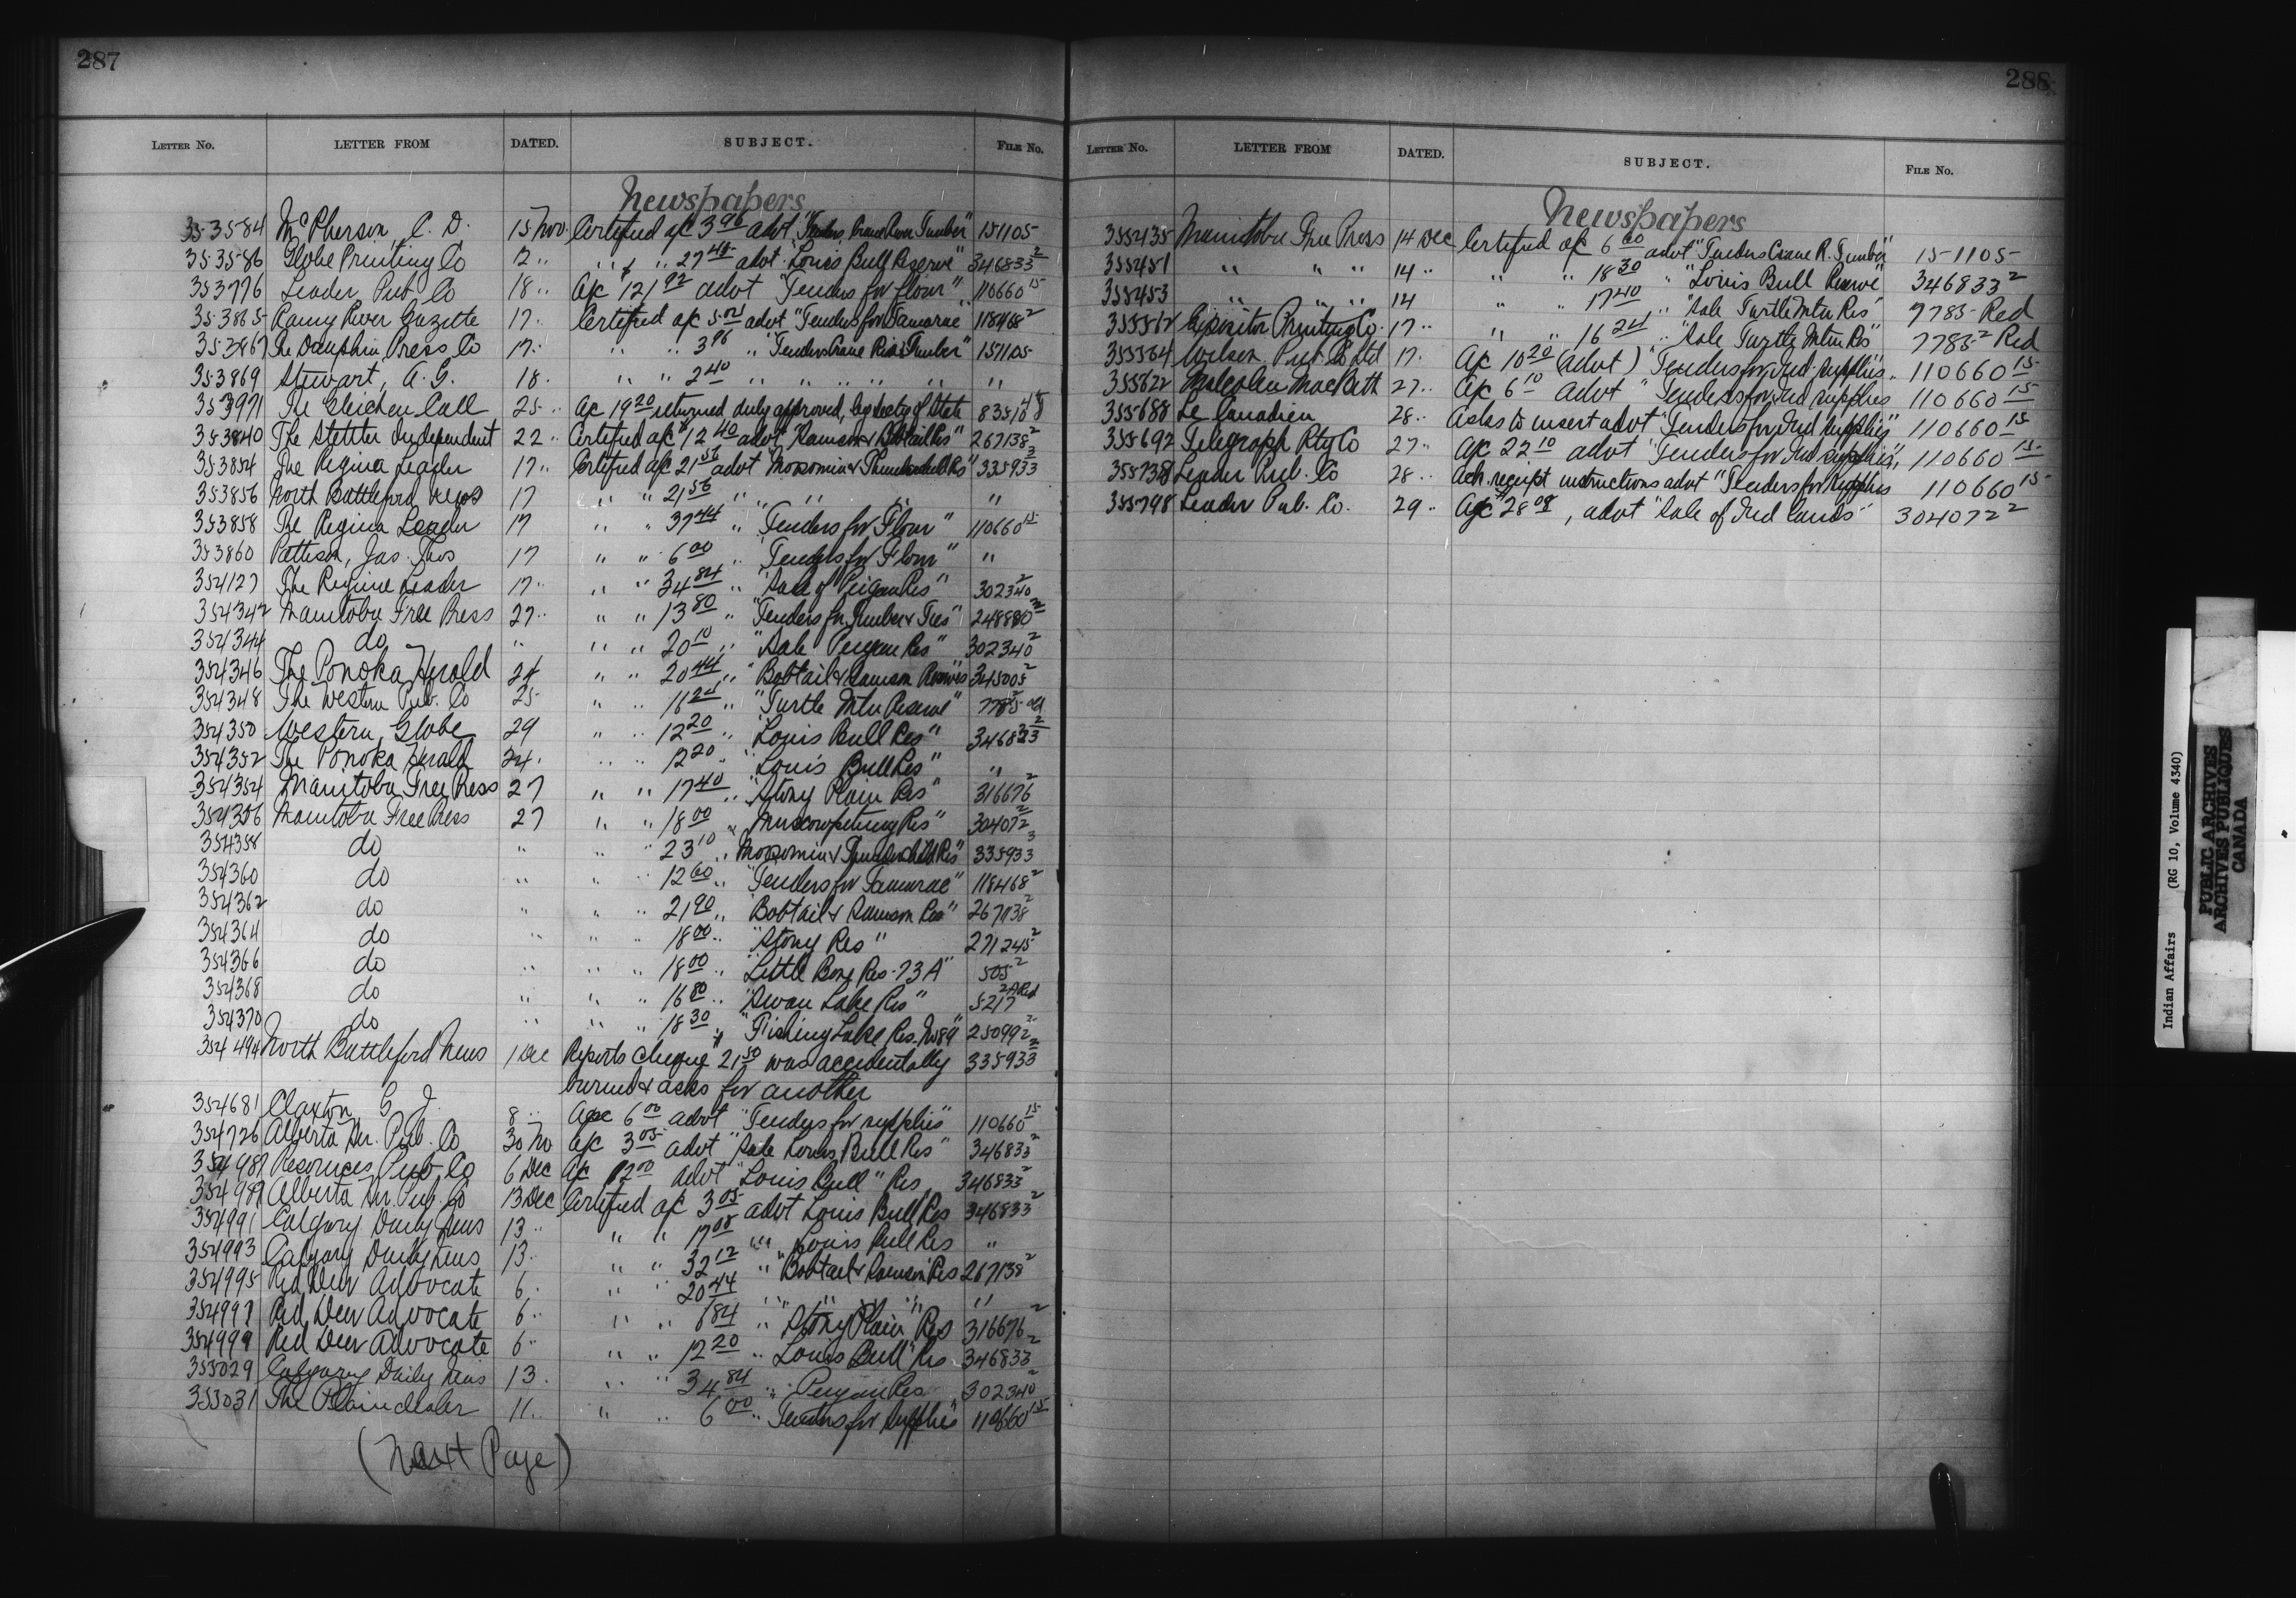 287
LETTER No. LETTER FROM DATED. SUBJECT. FILE No.
Newspapers
353584 McPherson, C. D. 15 Nov. Certified a/c 3.96 advt "Tenders Crane River Timber" 151105
353586 Globe Printing Co 12 " " " 27.45 advt "Louis Bull Reserve" 346833 2
353776 Leader Pub. Co 18 " A/c 121.92 advt "Tenders for flour" 110660 15
353865 Rainy River Gazette 17 " Certified a/c 5.02 advt "Tenders for Tamarac" 118468 2
353867 The Dauphin Press Co 17 " " " 3.96 " "Tenders Crane River Timber" 151105
353869 Stewart, A. G. 18 " " " 2.40 " " " " " "
353971 The Gleichen Call 25 " A/c 19.20 returned duly approved, by Secty of State
353840 The Stettler Independent 22 " Certified a/c 12.40 advt "Samson & Bobtail Res" 267138 2
353854 The Regina Leader 17 " Certified a/c 21.56 advt "Moosomin & Thunderchild Res" 335933 3
353856 North Battleford News 17 " " 21.56 " " " "
353858 The Regina Leader 17 " " 37.44 " "Tenders for Flour" 110660 15
353860 Pattison, Jas. 17 " " 6.00 " "Tenders for Flour" "
354127 The Regina Leader 17 " " " 34.84 " "Sale of Peigan Res" 302340 2
354342 Manitoba Free Press 27 " " " 13.80 " "Tenders for Timber & Ties" 248880
354344 do " " " 20.10 " "Sale Peigan Res" 302340 2
354346 The Ponoka Herald 24 " " 20.44 " "Bobtail & Samson Reserves" 345005 2
354348 The Western Pub. Co 25 " " 16.24 " "Turtle Mtn Reserve" 7785 2
354350 Western Globe 29 " " 12.20 " "Louis Bull Res" 346833 2
354352 The Ponoka Herald 24 " " " 12.20 " "Louis Bull Res" "
354354 Manitoba Free Press 27 " " 17.40 " "Stony Plain Res" 316676 2
354356 Manitoba Free Press 27 " " 18.00 " "Muscowpetung Res" 304072 2
354358 do " " " 23.10 " "Moosomin & Thunderchild Res" 335933 3
354360 do " " " 12.60 " "Tenders for Tamarac" 118468 2
354362 do " " " 21.90 " "Bobtail & Samson Res" 267138 2
354364 do " " " 18.00 " "Stony Res" 271245 2
354366 do " " " 18.00 " "Little Bone Res. 73A" 505 2
354368 do " " " 16.80 " "Swan Lake Res" 5217 2A Red
354370 do " " " 18.30 " "Fishing Lake Res. No 89" 250992 2
354494 North Battleford News 1 Dec Reports cheque 21.50 was accidentally 335933 3
burned & asks for another
354681 Claxton, G. J. 8 " A/c 6.00 advt "Tenders for supplies" 110660 15
354726 Alberta Ptr. Pub. Co 30 No A/c 3.05 advt "Sale Louis Bull Res" 346833 2
354987 Resources Pub. Co 6 Dec A/c 12.00 advt "Louis Bull" Res 346833 2
354989 Alberta Ptr. Pub. Co 13 Dec Certified a/c 3.05 advt Louis Bull Res 346833 2
354991 Calgary Daily News 13 " " " 17.08 " " Louis Bull Res "
354993 Calgary Daily News 13 " " " 32.12 " "Bobtail & Samson" Res 267138 2
354995 Red Deer Advocate 6 " " " 20.44 " " " " "
354997 Red Deer Advocate 6 " " " 6.84 " "Stony Plain" Res 316676 2
354999 Red Deer Advocate 6 " " " 12.20 " Louis Bull Res 346833 2
355029 Calgary Daily News 13 " " " 34.84 " "Peigan Res 302340 2
355031 The Plaindealer 11 " " " 6.00 " "Tenders for supplies" 110660 15
(Next Page)
288
LETTER No. LETTER FROM DATED. SUBJECT. FILE No.
Newspapers
355435 Manitoba Free Press 14 Dec Certified a/c 6.60 advt "Tenders Crane R. Timber" 151105
355451 " " " 14 " " " 18.30 " "Louis Bull Reserve" 346833 2
355453 " " " 14 " " 17.40 " "Sale Turtle Mtn Res" 7785 Red
355562 Expositor Printing Co. 17 " " " 16.24 " "Sale Turtle Mtn Res" 7785 2 Red
355564 Wilson Pub Co Ltd 17 " A/c 10.20 (advt) "Tenders for Ind. supplies" 110660 15
355622 Malcolm MacBeth 27 " A/c 6.10 advt "Tenders for Ind supplies 110660 15
355688 Le Canadien 28 " Asks to insert advt "Tenders for Ind supplies" 110660 15
355692 Telegraph Ptg Co 27 " A/c 22.10 advt "Tenders for Ind supplies" 110660 15
355738 Leader Pub. Co 28 " Ack. receipt instructions advt "Tenders for supplies 110660 15
355798 Leader Pub. Co. 29 " A/c 28.08, advt "Sale of Ind lands" 304072 2
Indian Affairs (RG 10, Volume 4340)
PUBLIC ARCHIVES
ARCHIVES PUBLIQUES
CANADA